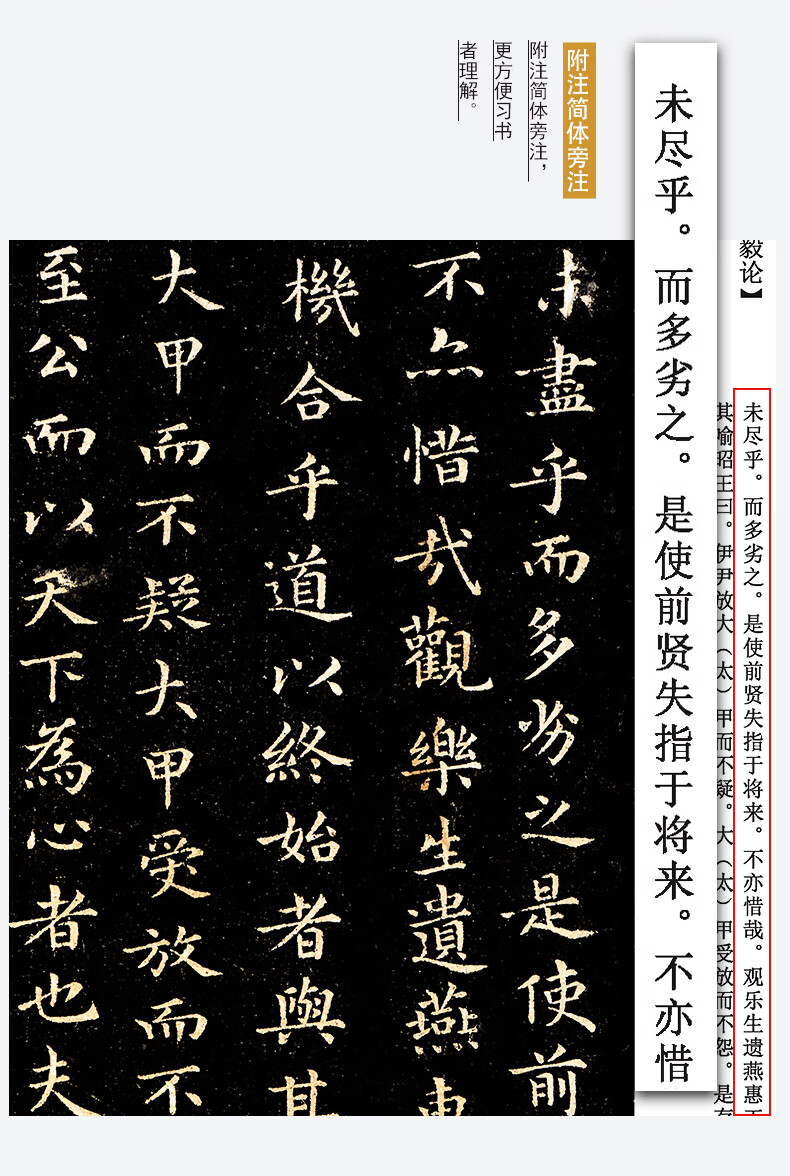 附注简体旁注
附注简体旁注，
更方便习书
者理解。
毅论】
未尽乎。而多劣之。是使前贤失指于将来。不亦惜哉。观乐生遗燕惠
其喻昭王曰。伊尹放大（太）甲而不疑。大（太）甲受放而不怨。是
未尽乎。而多劣之。是使前贤失指于将来。不亦惜
未盡乎而多劣之是使前
不亦惜哉觀樂生遺燕
機合乎道以終始者與其
大甲而不疑大甲受放而不
至公而以天下為心者也夫